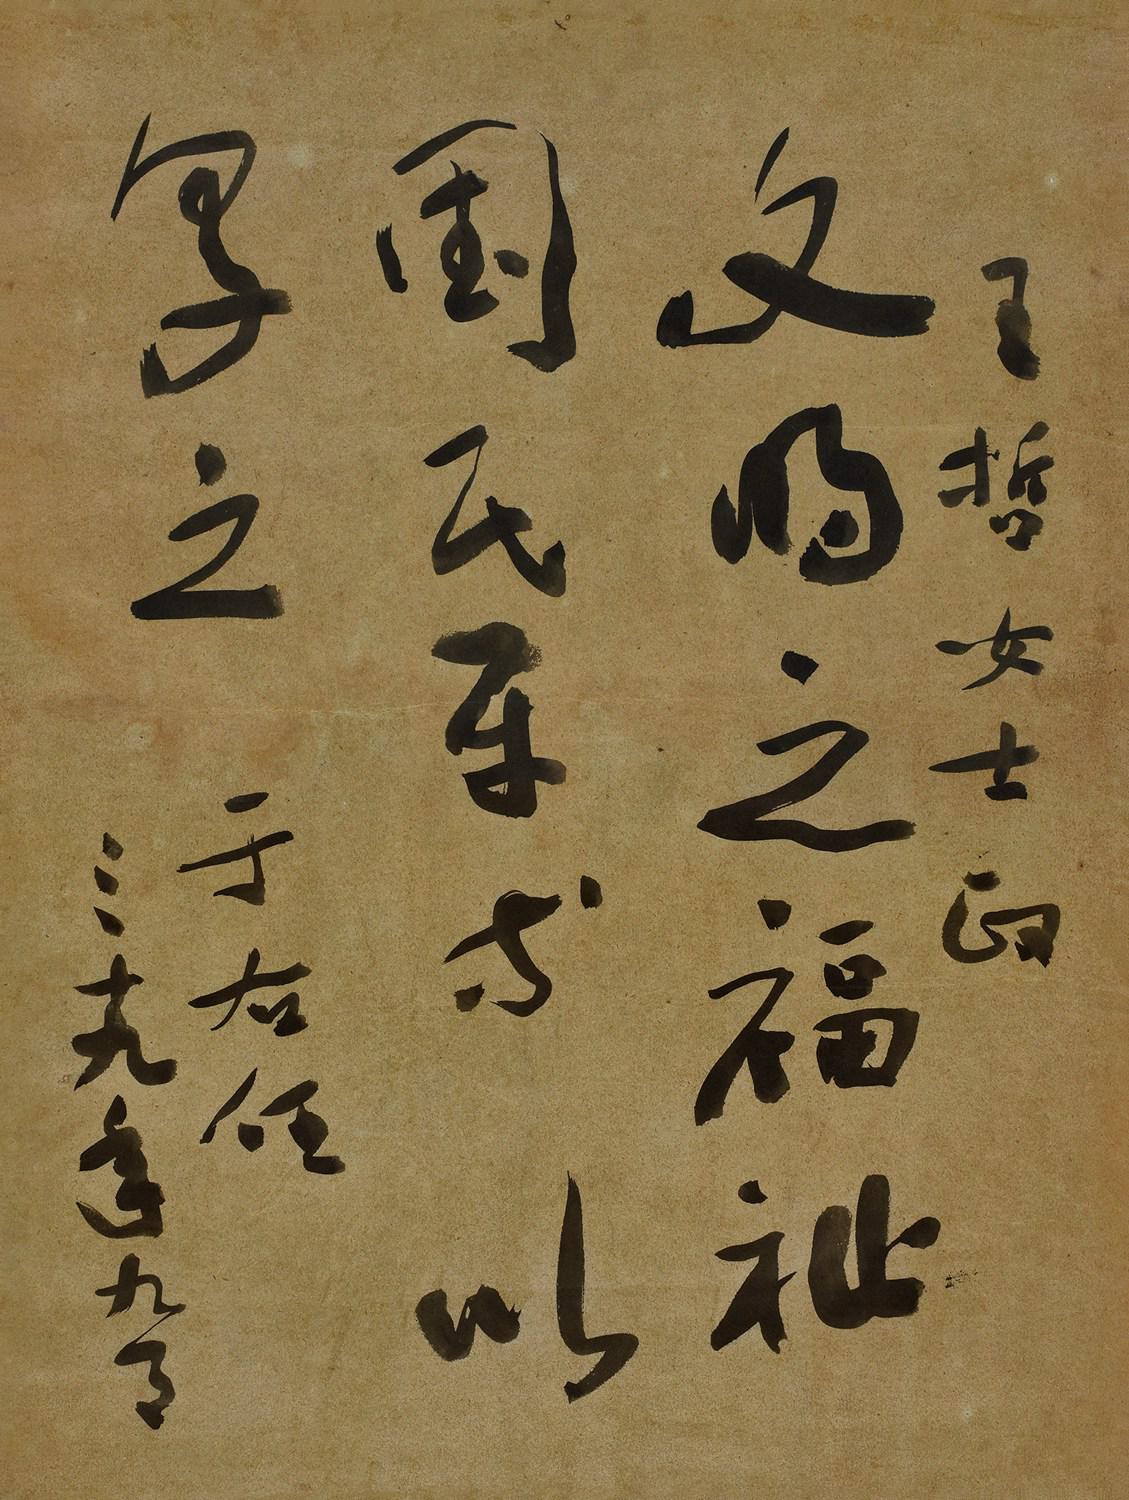 王哲女士正
文明之福祉
國民平等以
享之
于右任
三十九年九月